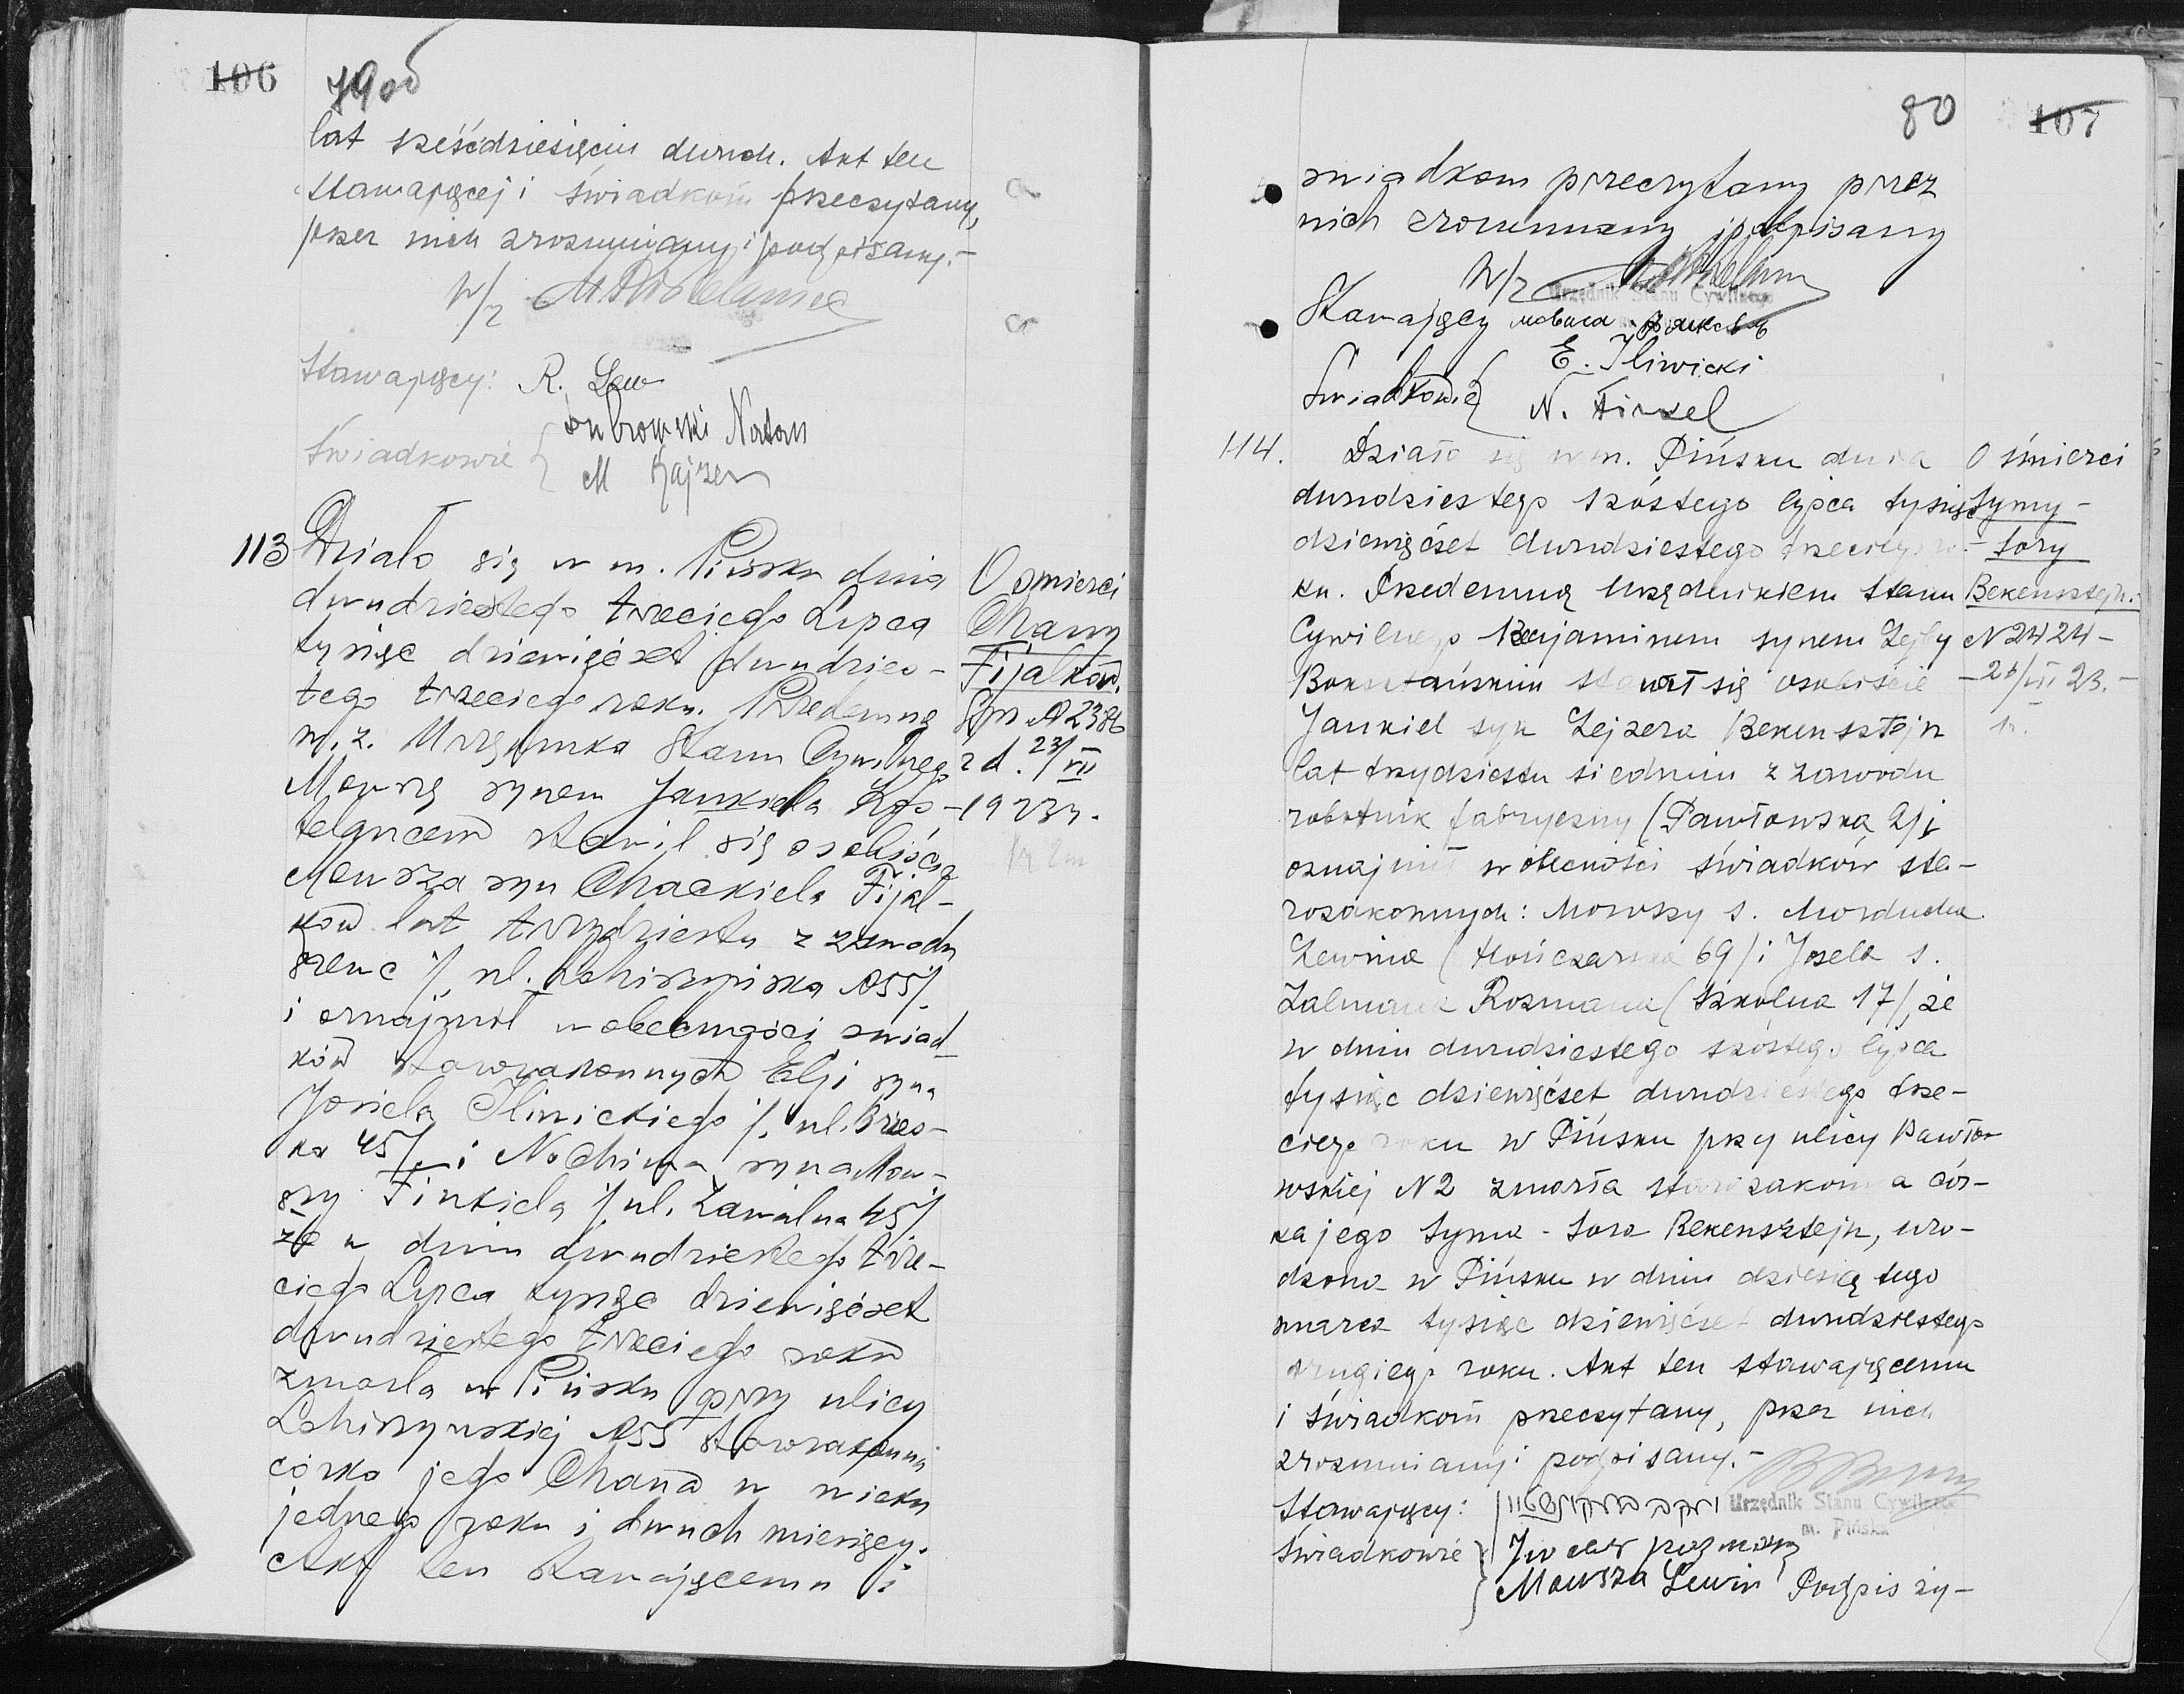 106
79 об
lat sześćdziesięciu dwuch. Akt ten
stawającej i świadkom przeczytany,
przez nich zrozumiany i podpisany.-
W/z
Stawający: R. Lew
Świadkowie { Dubrowski Natan
M Zajzer
113 Działo się w m. Pińsku dnia
dwudziestego trzeciego Lipca
tysiąc dziewięćset dwudzies-
tego trzeciego roku. Przedemną
w. z. Urzędnika Stanu Cywilnego
Mowszą synem Jankiela Kos-
telańcem stawił się osobiście
Mowsza syn Chackiela Fijał-
kow lat trzydziestu z zawodu
szewc /, ul. Lohiszyńska №55/
i oznajmił w obecności świad-
ków starozakonnych Elji syna
Josiela Iliwickiego /, ul. Brzes-
ka 45/ i Nochima syna Mow-
szy Finkiela /, ul. Zawalna 45/
że w dniu dwudziestego trze-
ciego Lipca tysiąc dziewięćset
dwudziestego trzeciego roku
zmarła w Pińsku przy ulicy
Lohiszyńskiej №55 starozakonna
córka jego Chana w wieku
jednego roku i dwuch miesięcy.
Akt ten stawającemu i
O śmierci
Chany
Fijałkow.
Spr №2386
z d. 23/VII
1923 r.
80
107
świadkom przeczytany przez
nich zrozumiany i podpisany
W/z
Urzędnik Stanu Cywilnego
Stawający
Świadkowie { E. Iliwicki
N. Finkel
114. Działo się w m. Pińsku dnia
dwudziestego szóstego lipca tysiąc
dziewięćset dwudziestego trzeciego ro-
ku. Przedemną Urzędnikiem Stanu
Cywilnego Benjaminem synem Lejby
Boksztańskim stawał się osobiście
Jankiel syn Lejzera Bekensztejn
lat trzydziestu siedmiu z zawodu
robotnik fabryczny (Pawłowska 2) i
oznajmił w obecności świadków sta-
rozakonnych: Mowszy s. Morducha
Lewina (Hończarska 69) i Josela s.
Zalmana Rozmana (Szkolna 17), że
w dniu dwudziestego szóstego lipca
tysiąc dziewięćset dwudziestego trze-
ciego roku w Pińsku przy ulicy Pawło-
wskiej N 2 zmarła starozakonna cór-
ka jego Syma - Sora Bekensztejn, uro-
dzona w Pińsku w dniu dziesiątego
marca tysiąc dziewięćset dwudziestego
drugiego roku. Akt ten stawającemu
i świadkom przeczytany, przez nich
zrozumiany i podpisany.-
Urzędnik Stanu Cywilnego
m. Pińska
Stawający:
Świadkowie }
Mowsza Lewin Podpis ży-
O śmierci
Symy -
- Sory
Bekensztejn.
N 2424 -
- 26/VII 23. -